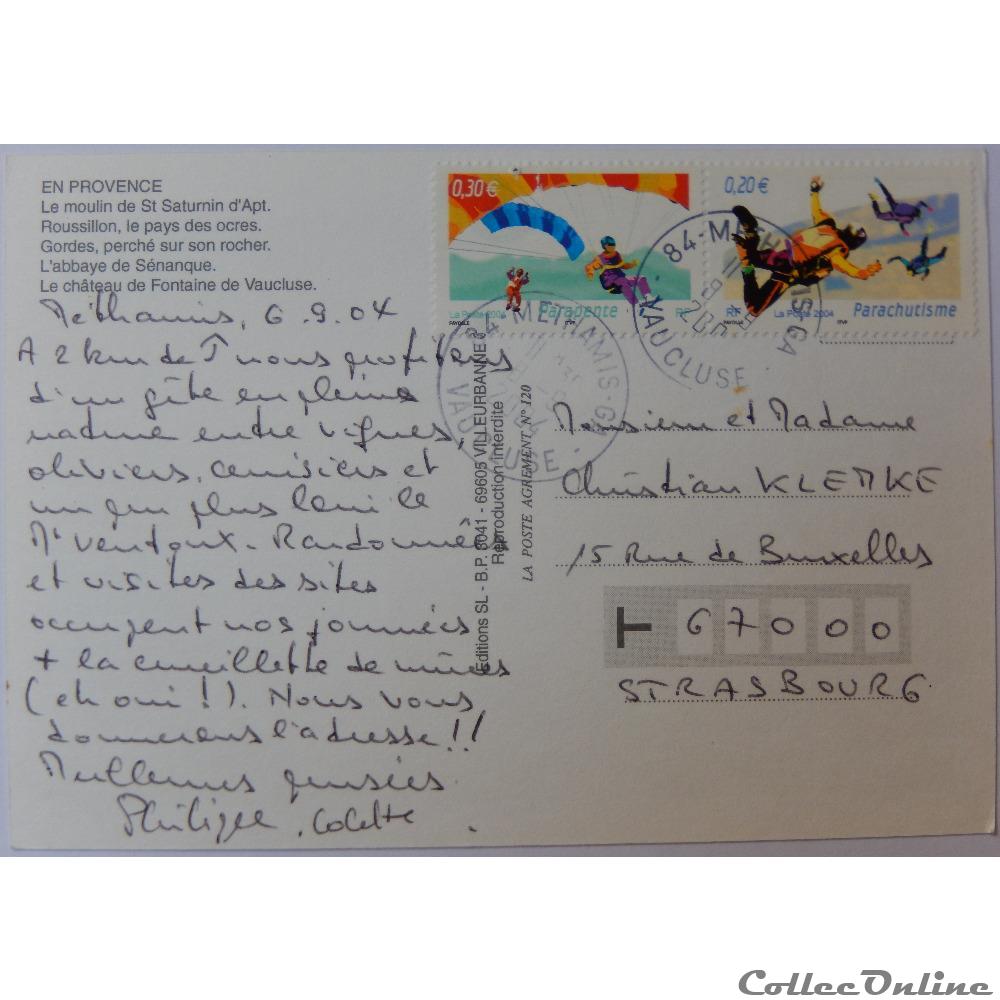 EN PROVENCE
Le moulin de St Saturnin d'Apt.
Roussillon, le pays des ocres.
Gordes, perché sur son rocher.
L'abbaye de Sénanque.
Le château de Fontaine de Vaucluse.
Méthamis, 6.9.04
A 2 km de nous profitons
d'un gîte en pleine
nature entre vignes,
oliviers, cerisiers et
un peu plus loin le
Mt Ventoux. Randonnées
et visites des sites
occupent nos journées
+ la cueillette de mûres
(eh oui !). Nous vous
donnerons l'adresse !!
Meilleures pensées
Philippe, Colette.
0,30 €
Parapente
La Poste 2004
RF
0,20 €
Parachutisme
RF
La Poste 2004
84-METHAMIS-GA
VAUCLUSE
84-METHAMIS-GA
VAUCLUSE
Editions SL - B.P. 3041 - 69605 VILLEURBANNE
Reproduction interdite
LA POSTE AGREMENT N° 120
Monsieur et Madame
Christian KLEMKE
15 Rue de Bruxelles
67000
STRASBOURG
CollecOnline